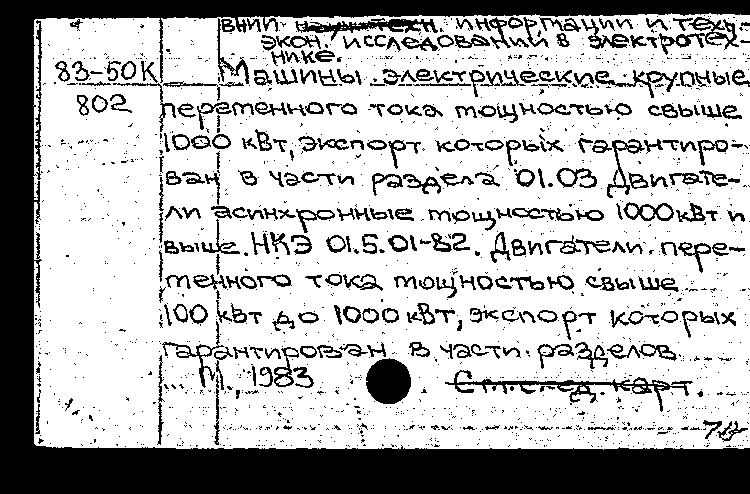 ВНИИ информации и техн-
экон. исследований в электротех-
нике.
83-50К Машины электрические крупные
802 переменного тока мощностью свыше
1000 кВт, экспорт которых гарантиро-
ван в части раздела 01.03 Двигате-
ли асинхронные мощностью 1000 кВт и
выше. НКЭ 01.5.01-82. Двигатели пере-
менного тока мощностью свыше
100 кВт до 1000 кВт, экспорт которых
гарантирован в части разделов
... М., 1983 См. след. карт.